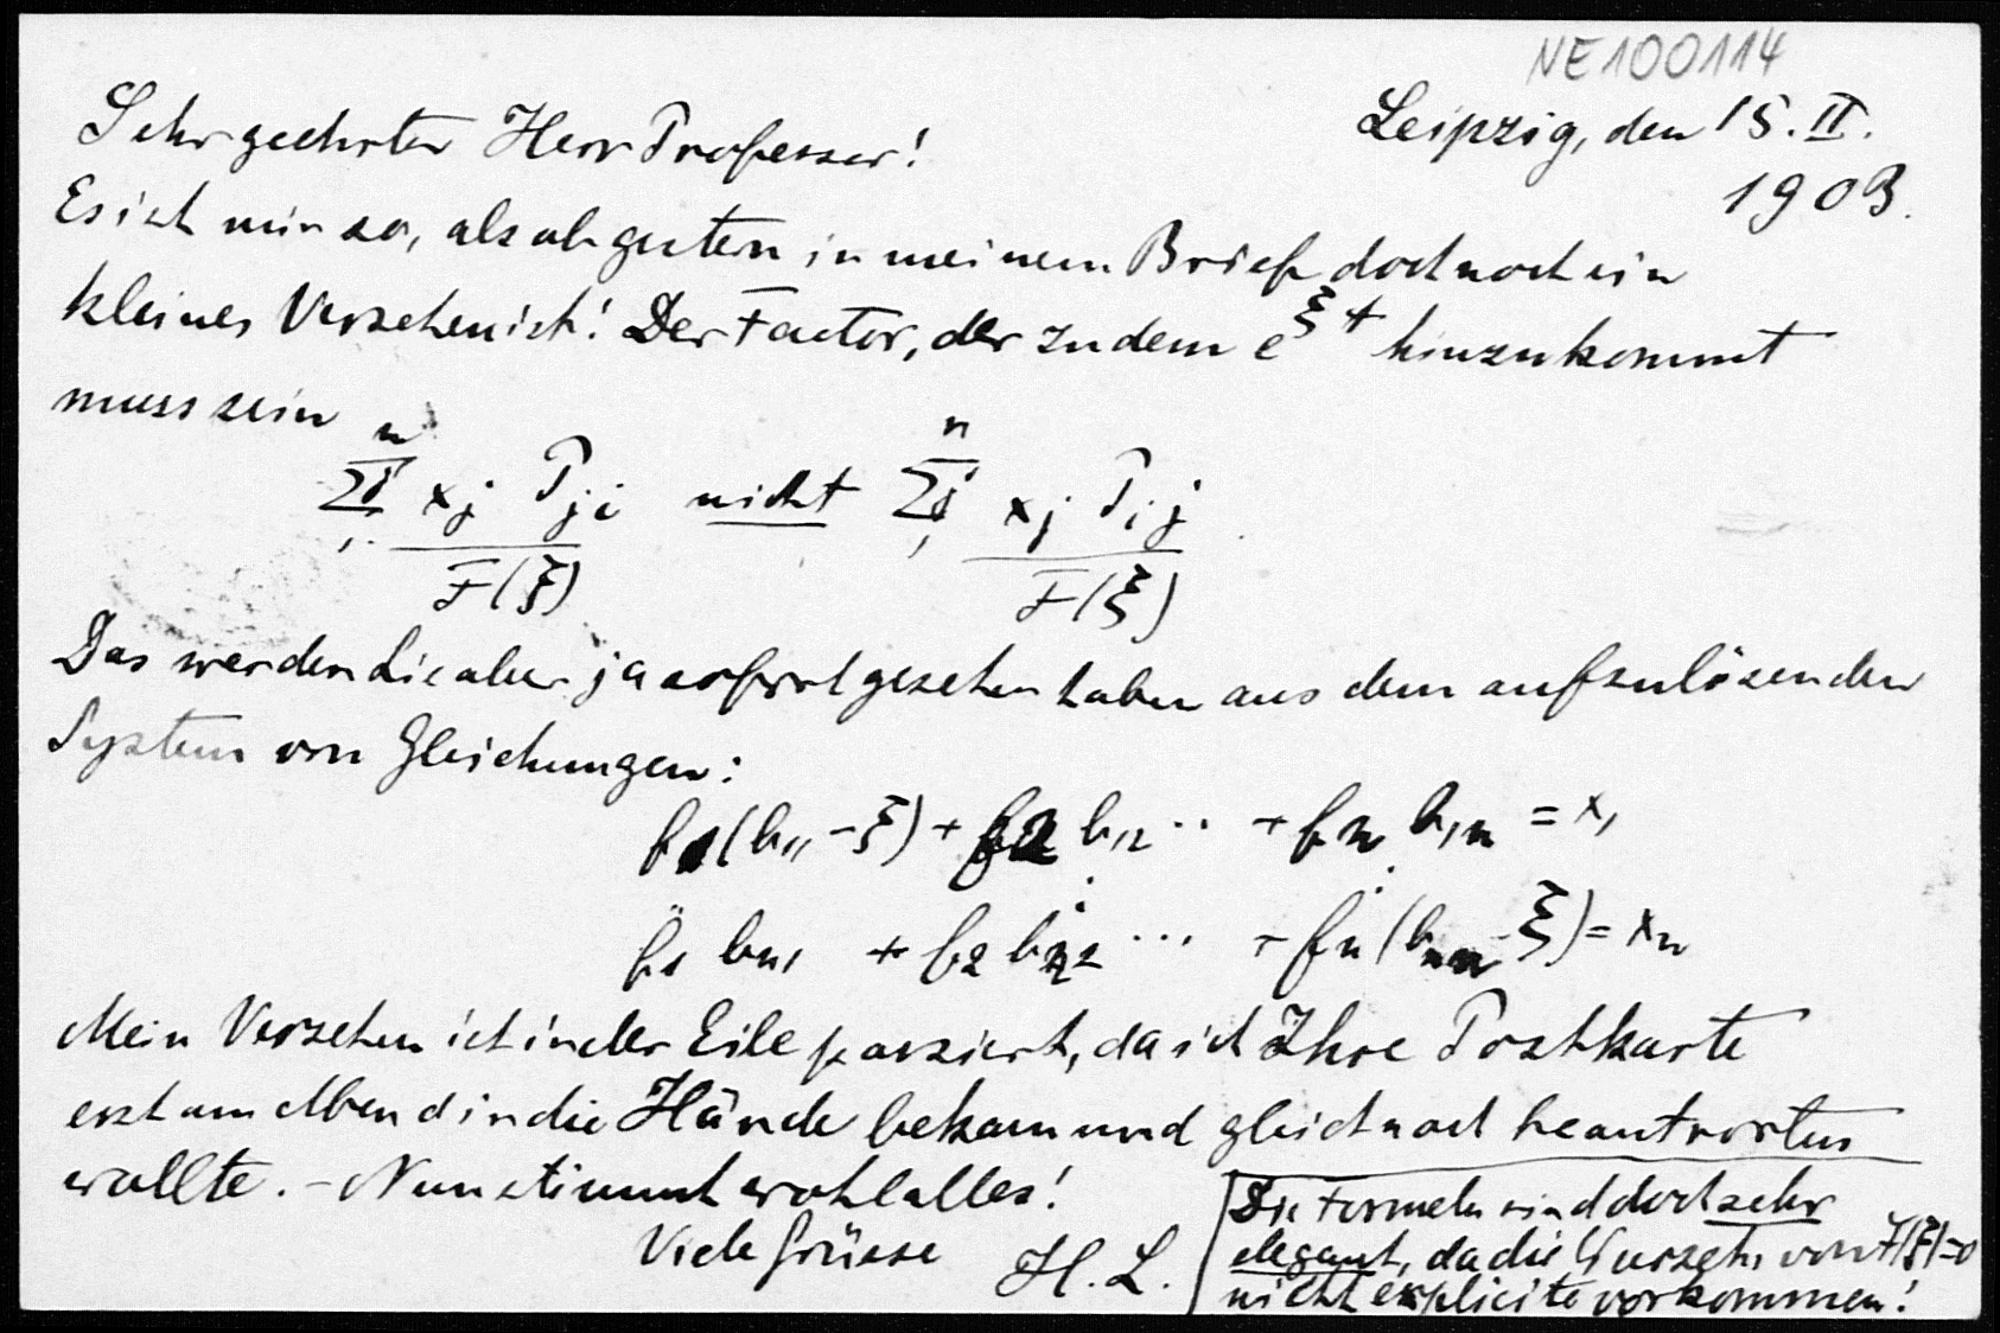 NE100114
Leipzig, den 15. II.
1903.
Sehr geehrter Herr Professor!
Es ist mir so, als ob gestern in meinem Brief doch noch ein
kleines Versehen ist! Der Factor, der zu dem e^{ξt} hinzukommt
muss sein
n n
Σj xj Pji nicht Σj xj Pij
1 F(ξ) 1 F(ξ)
Das werden Sie aber ja sofort gesehen haben aus dem aufzulösenden
System von Gleichungen:
f1(b11 - ξ) + f2 b12 .. + fn b1n = x1
f1 bn1 + f2 bn2 ... + fn(bnn - ξ) = xn
Mein Versehen ist in der Eile passiert, da ich Ihre Postkarte
erst am Abend in die Hände bekam und gleich noch beantworten
wollte. - Nun stimmt wohl alles!
Viele Grüsse H. L.
Die Formeln sind doch sehr
elegant, da die Wurzeln von F(ξ)=0
nicht explicite vorkommen!